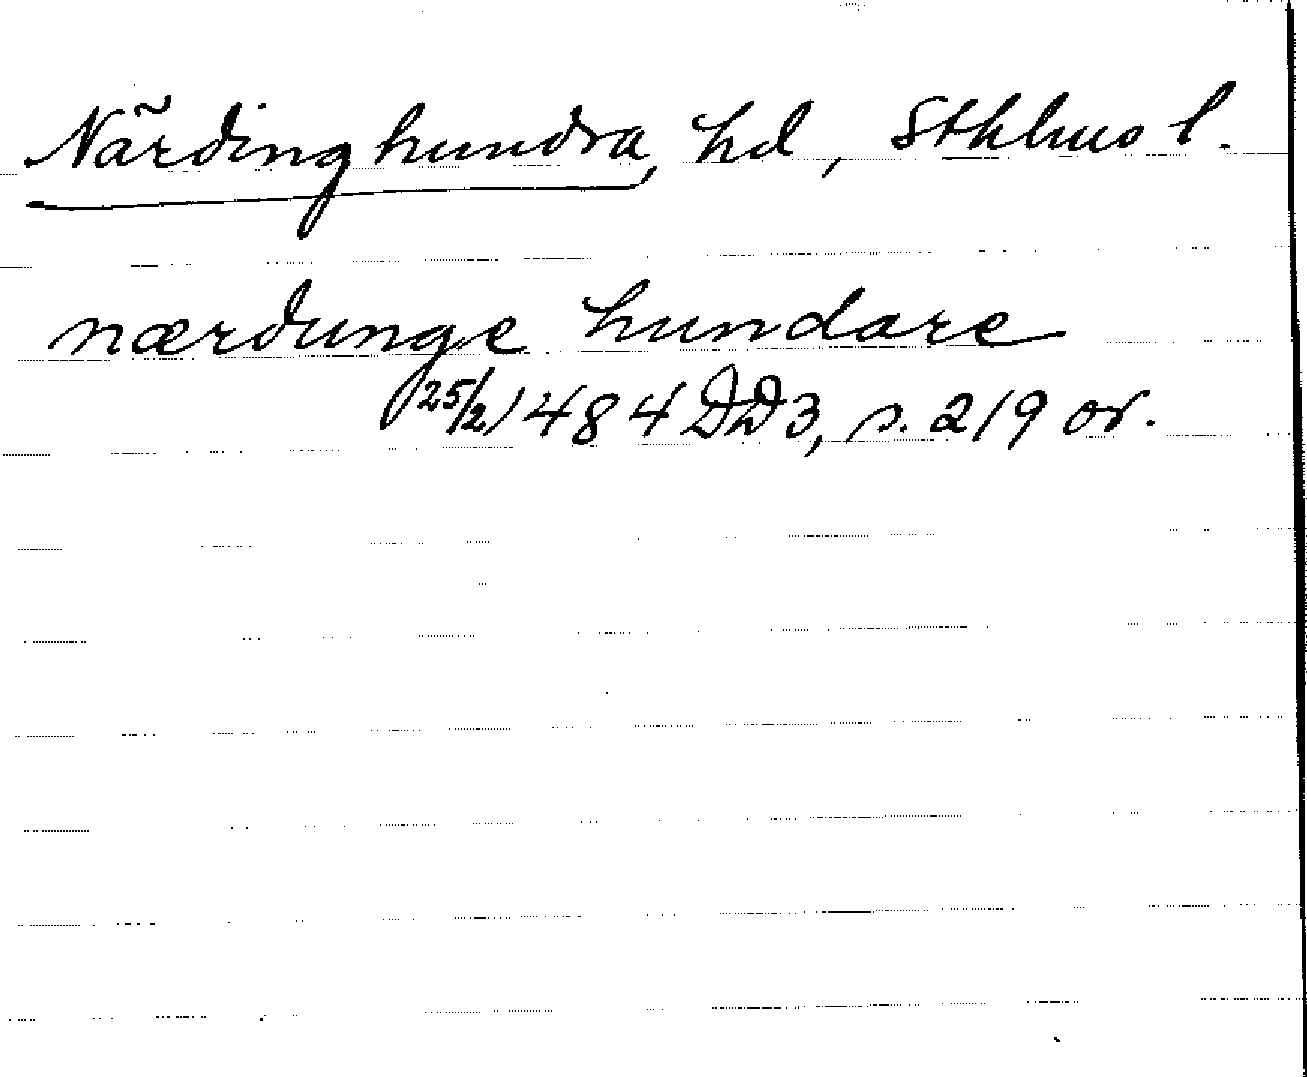 Närdinghundra, hd, Sthlms l.
nærdunge hundare
(25/2) 1484 DD3, s. 219 or.